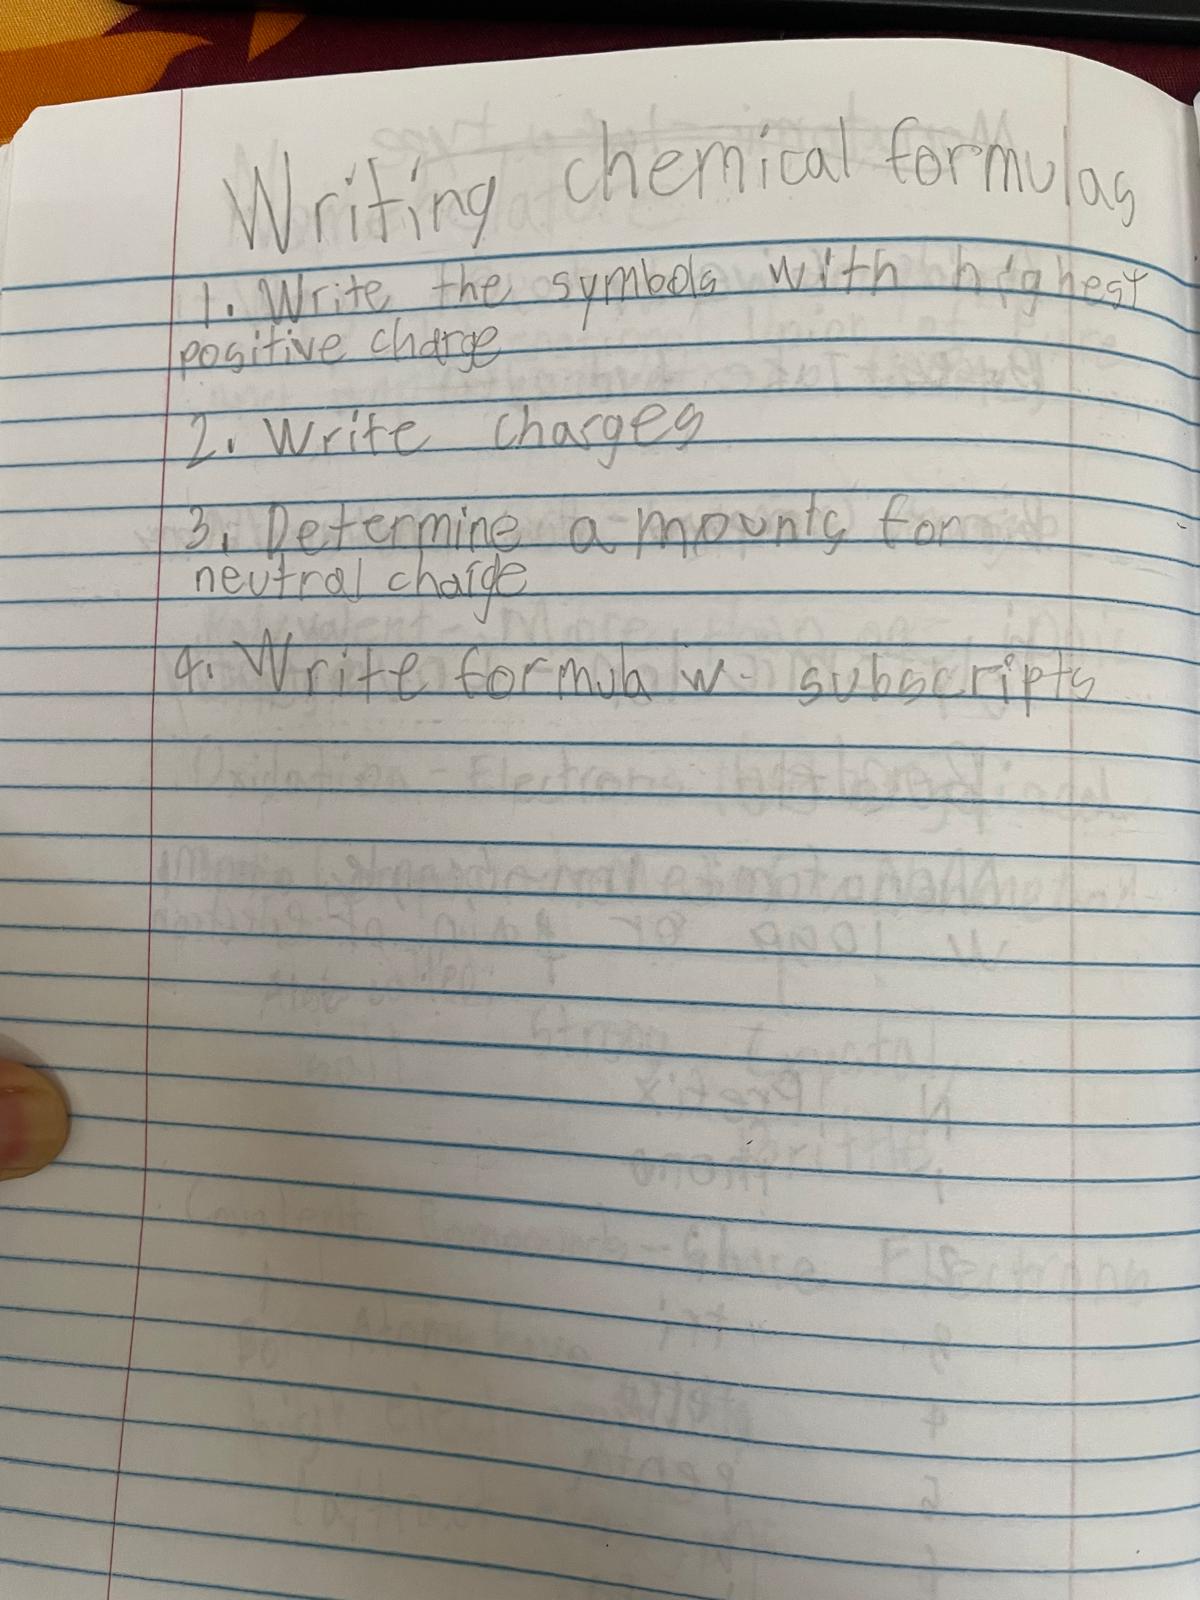 Writing chemical formulas
1. Write the symbols with highest
positive charge
2. Write charges
3. Determine amounts for
neutral charge
4. Write formula w- subscripts